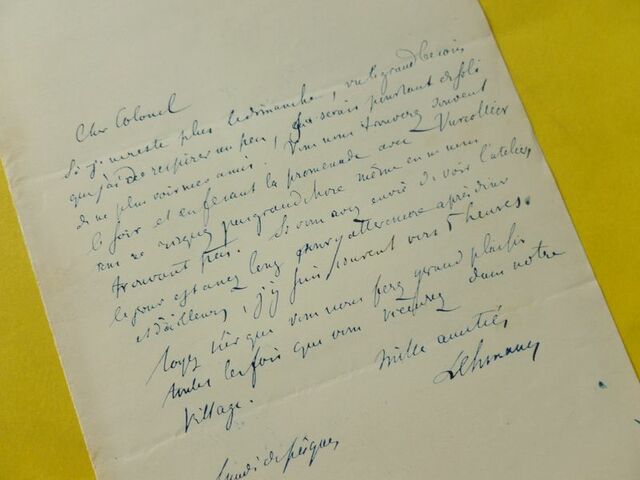 Cher Colonel
Si je ne reste plus le dimanche, vu le grand besoin
que j'ai de respirer un peu, je serais pourtant désolé
de ne plus voir mes amis. Vous nous trouverez souvent
le soir et en fesant la promenade avec
vous ne risquez pas grand chose même en ne nous
trouvant pas. Si vous avez envie de voir l'atelier,
le jour est assez long pour y atteindre après diner
et d'ailleurs, j'y suis souvent vers 5 heures.
Soyez sûr que vous nous ferez grand plaisir
toutes les fois que vous viendrez dans notre
Village.
Mille amitiés
Lehmann
Lundi de Pâques